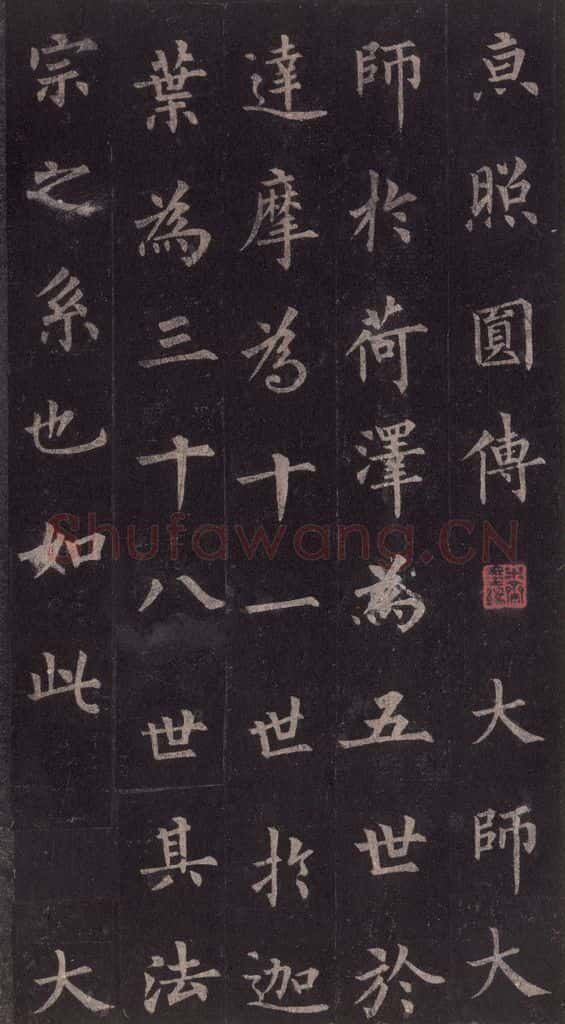 亰照圓傳 大師大
師於荷澤為五世於
達摩為十一世於迦
葉為三十八世其法
宗之系也如此 大
Shufawang.CN